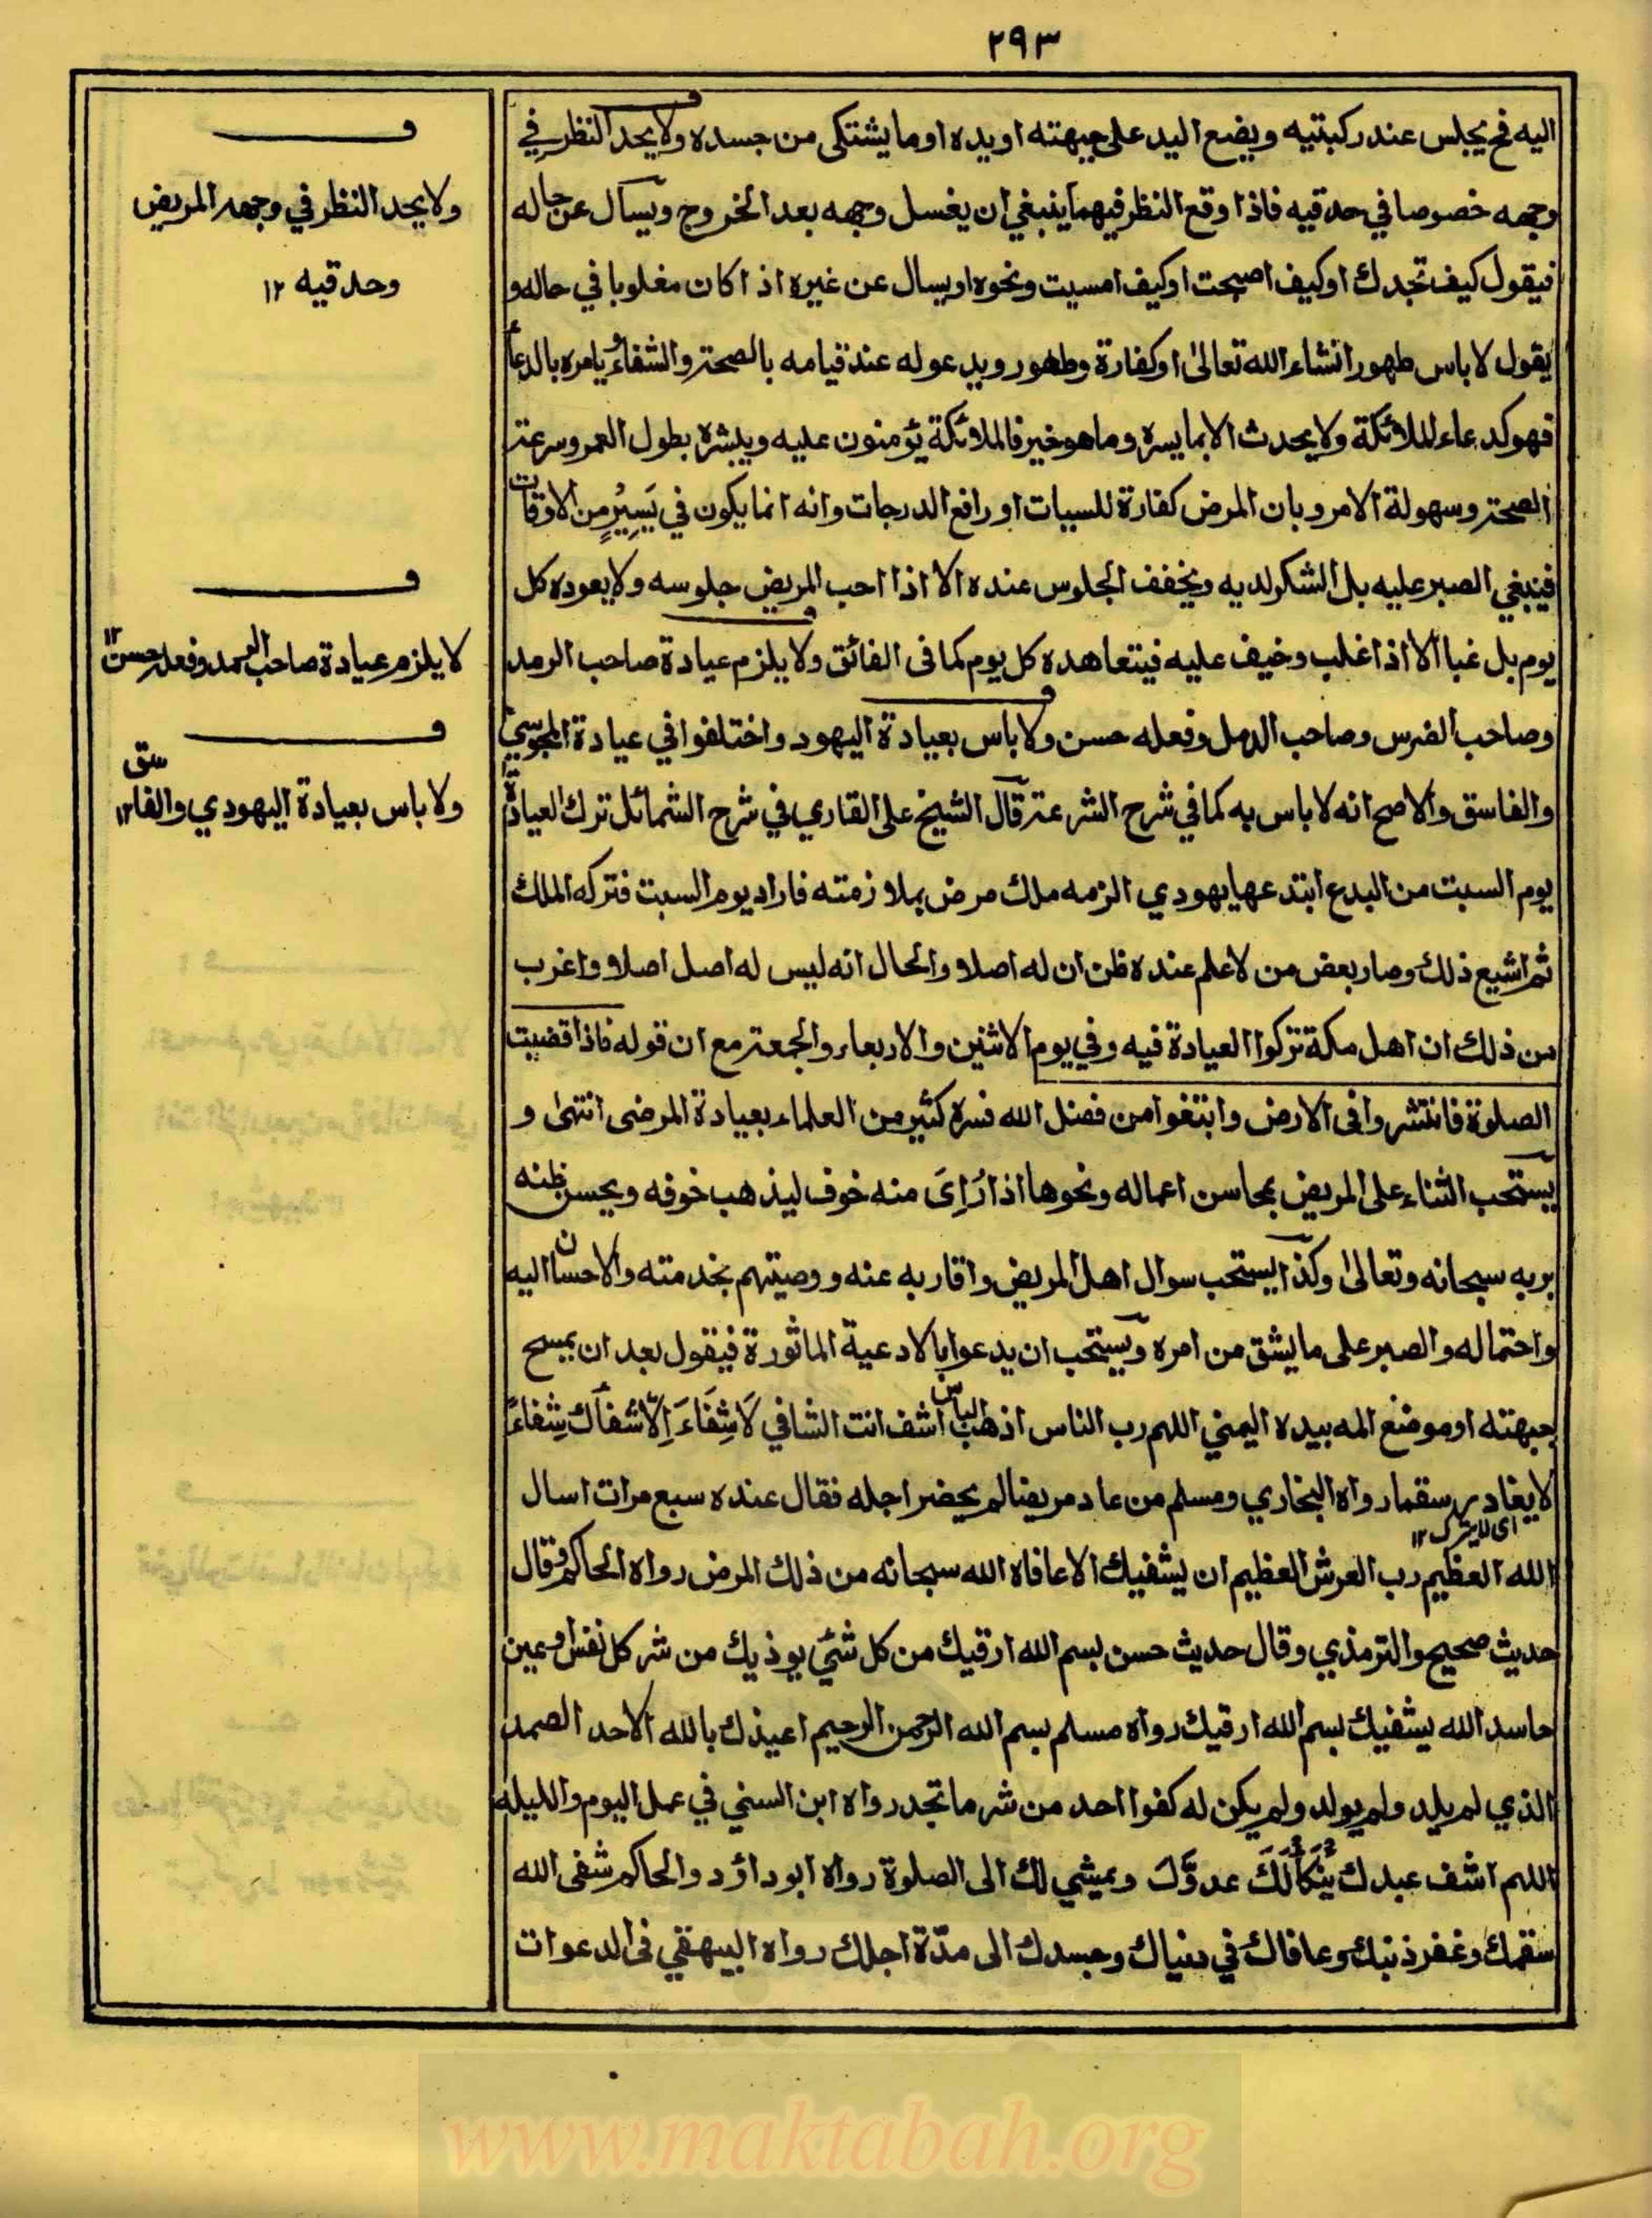 ٢٩٣
اليه فح يجلس عند ركبتيه ويضع اليد على جبهته او يده او ما يشتكى من جسده ولا يحد النظر في
وجهه خصوصا في حدقيه فاذا وقع النظر فيهما ينبغي ان يغسل وجهه بعد الخروج ويسأل عن حاله
فيقول كيف تجدك او كيف اصبحت او كيف امسيت ونحوه او يسال عن غيره اذا كان مغلوبا في حاله و
يقول لا باس طهور انشاء الله تعالى او كفارة وطهور ويدعو له عند قيامه بالصحة والشفاء ويامره بالدعاء
فهو كدعاء للملائكة ولا يحدث الا بما يسره وما هو خير فالملائكة يؤمنون عليه ويبشره بطول العمر وسرعة
الصحة وسهولة الامر وبان المرض كفارة للسيات او رافع الدرجات وانه انما يكون في يَسِيرٍ من الاوقات
فينبغي الصبر عليه بل الشكر لديه ويخفف الجلوس عنده الا اذا احب المريض جلوسه ولا يعوده كل
يوم بل غبا الا اذا غلب وخيف عليه فيتعاهده كل يوم كما فى الفائق ولا يلزم عيادة صاحب الرمد
وصاحب الضرس وصاحب الدمل وفعله حسن ولا باس بعيادة اليهود واختلفوا في عيادة المجوسي
والفاسق والاصح انه لا باس به كما في شرح الشرعة قال الشيخ على القاري في شرح الشمائل ترك العيادة
يوم السبت من البدع ابتدعها يهودي الزمه ملك مرض بملازمته فاراد يوم السبت فتركه الملك
ثم اشيع ذلك وصار بعض من لا علم عنده ظن ان له اصلا والحال انه ليس له اصل اصلا واغرب
من ذلك ان اهل مكة تركوا العيادة فيه وفي يوم الاثنين والاربعاء والجمعة مع ان قوله فاذا قضيت
الصلوة فانتشروا فى الارض وابتغوا من فضل الله فسره كثير من العلماء بعيادة المرضى انتهى و
يستحب الثناء على المريض بمحاسن اعماله ونحوها اذا رَاِىَ منه خوف ليذهب خوفه ويحسن ظنه
بربه سبحانه وتعالى وكذا يستحب سوال اهل المريض واقاربه عنه ووصيتهم بخدمته والاحسان اليه
واحتماله والصبر على ما يشق من امره ويستحب ان يدعوا بالادعية الماثورة فيقول بعد ان يمسح
جبهته او موضع المه بيده اليمني اللهم رب الناس اذهب الباس اشف انت الشافي لَا شِفَاءَ اِلَّا شفاَك شِفاءً
لا يغادر سقما رواه البخاري ومسلم من عاد مريضا لم يحضر اجله فقال عنده سبع مرات اسال
اى لا يترك ١٢
الله العظيم رب العرش العظيم ان يشفيك الا عافاه الله سبحانه من ذلك المرض رواه الحاكم وقال
حديث صحيح والترمذي وقال حديث حسن بسم الله ارقيك من كل شئ يوذيك من شر كل نفس او عين
حاسد الله يشفيك بسم الله ارقيك رواه مسلم بسم الله الرحمن الرحيم اعيذك بالله الاحد الصمد
الذي لم يلد ولم يولد ولم يكن له كفوا احد من شر ما تجد رواه ابن السني في عمل اليوم والليلة
اللهم اشف عبدك يَنْكَأْ لَكَ عدوَّك ويمشي لك الى الصلوة رواه ابو داؤد والحاكم شفى الله
سقمك وغفر ذنبك وعافاك في دنياك وجسدك الى مدّة اجلك رواه البيهقي فى الدعوات
ولا يحد النظر في وجهه المريض
وحدقيه ١٢
لا يلزم عيادة صاحب الرمد وفعله حسن ١٢
ولا باس بعيادة اليهودي والفاسق ١٢
www.maktabah.org